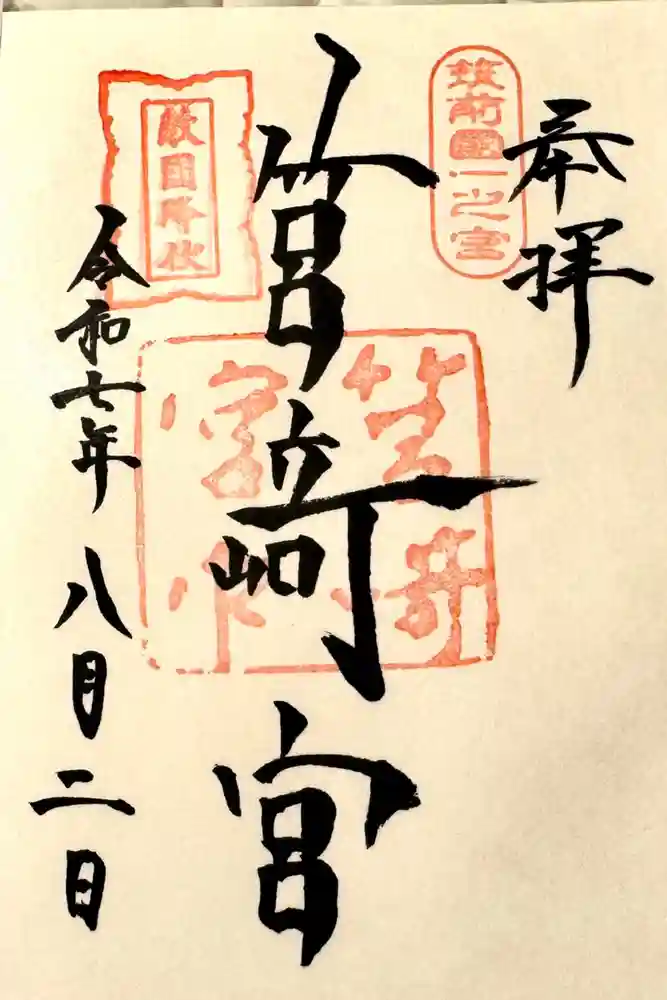 奉拝
筑前國一之宮
筥﨑宮
敵國降伏
令和七年八月二日